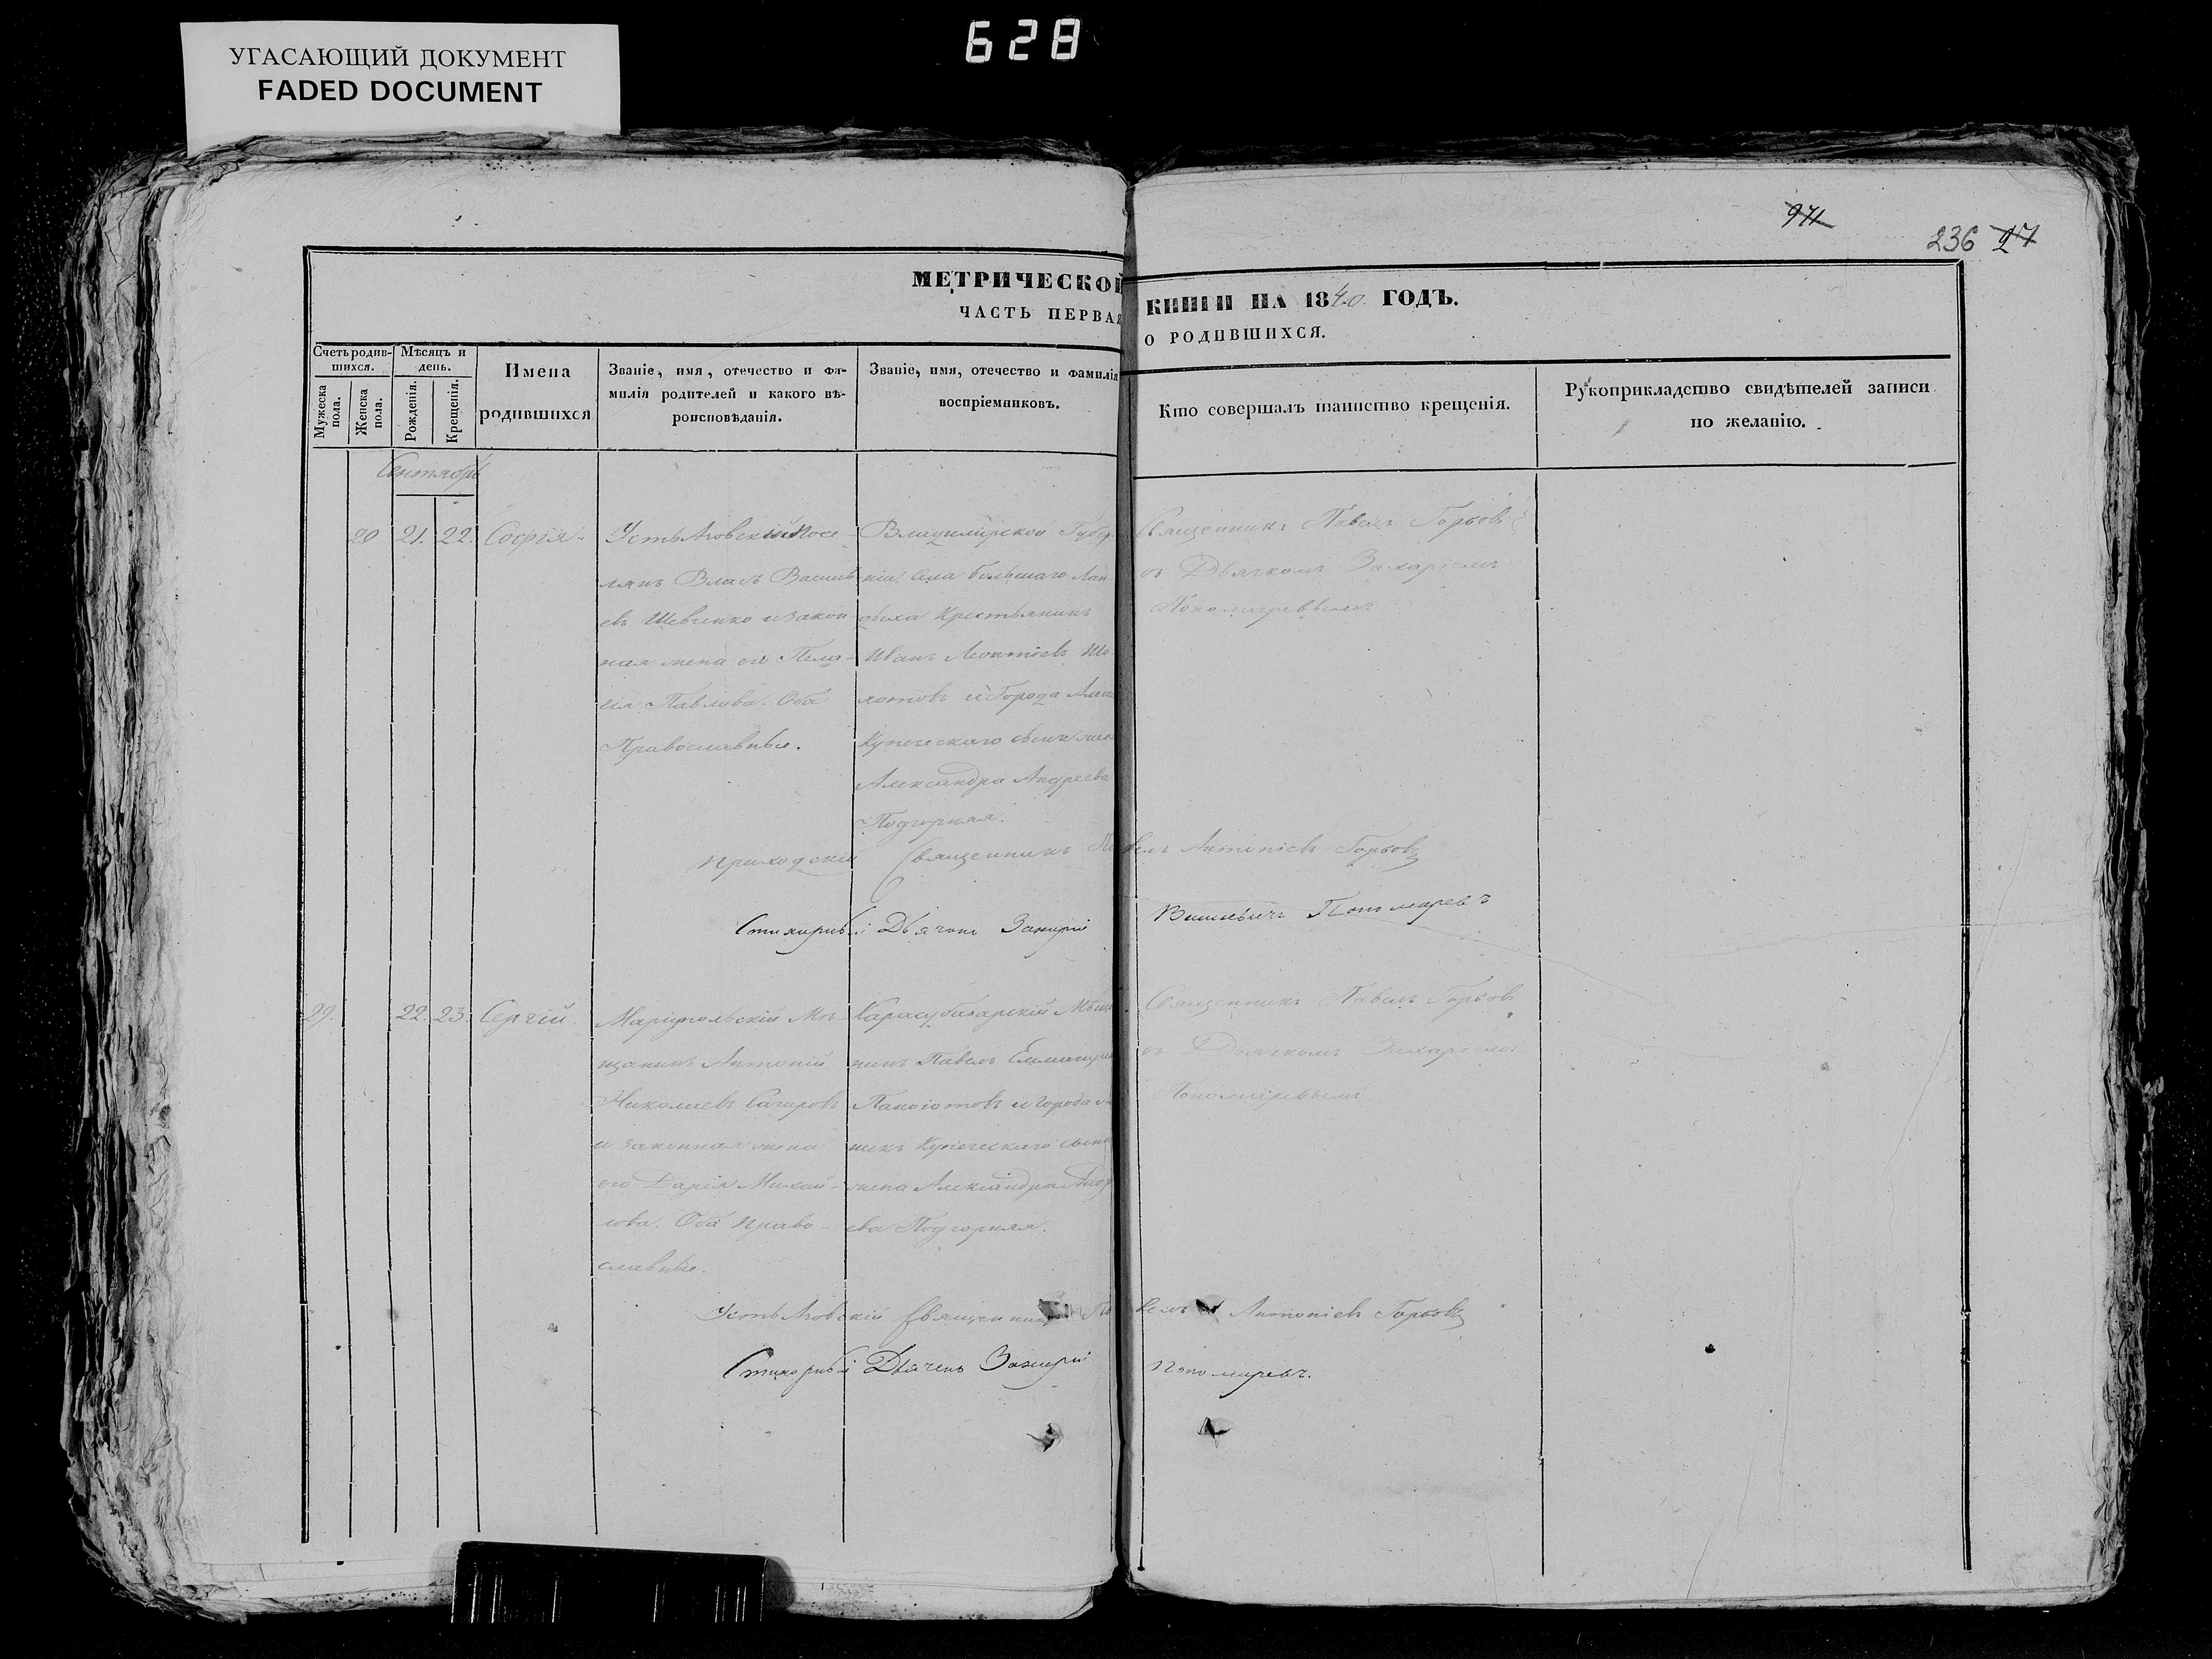 УГАСАЮЩИЙ ДОКУМЕНТ
FADED DOCUMENT
628
971
236 27
МЕТРИЧЕСКОЙ
ЧАСТЬ ПЕРВАЯ
Счетъ родив-
шихся.
Мѣсяцъ и
день.
Мужеска
пола.
Женска
пола.
Рожденія.
Крещенія.
Имена
родившихся
Званіе, имя, отечество и фа-
милія родителей и какого вѣ-
роисповѣданія.
Званіе, имя, отечество и фамилія
воспріемниковъ.
Сентябрь
20 21. 22. Софія
Усть Азовскій Посе-
лянъ Власъ Василь
евъ Шевченко и закон
ная жена его Пела-
гія Павлова. Оба
Православные.
Владимірской Губер
ніи Села большаго Лан
дыха Крестьянинъ
Иванъ Леонтіевъ
и Города
Купеческаго сына жена
Александра Андреева
Подгорная.
Приходскій Священникъ Па
Стихарный Дьячокъ Захарій
29. 22. 23. Сергій
Маріупольскій Мѣ-
щанинъ Антоній
Николаевъ
и законная жена
его Дарія Михай-
лова. Оба право-
славные.
Карасубазарскій Мѣща
нинъ Павелъ
Панаіотовъ и города
Купеческаго сына
жена Александра Андр
ева Подгорная.
Усть Азовскій Священникъ Па
Стихарный Дьячекъ Захарій
КНИГИ НА 1840 ГОДЪ.
О РОДИВШИХСЯ.
Кто совершалъ таинство крещенія.
Рукоприкладство свидѣтелей записи
по желанію.
Священникъ Павелъ Горбовъ
съ Дьячкомъ Захаріемъ
Пономаревымъ
велъ Антоніевъ Горбовъ
Пономаревъ
Священникъ Павелъ Горбовъ
съ Дьячкомъ Захаріемъ
Пономаревымъ
велъ Антоніевъ Горбовъ
Пономаревъ.